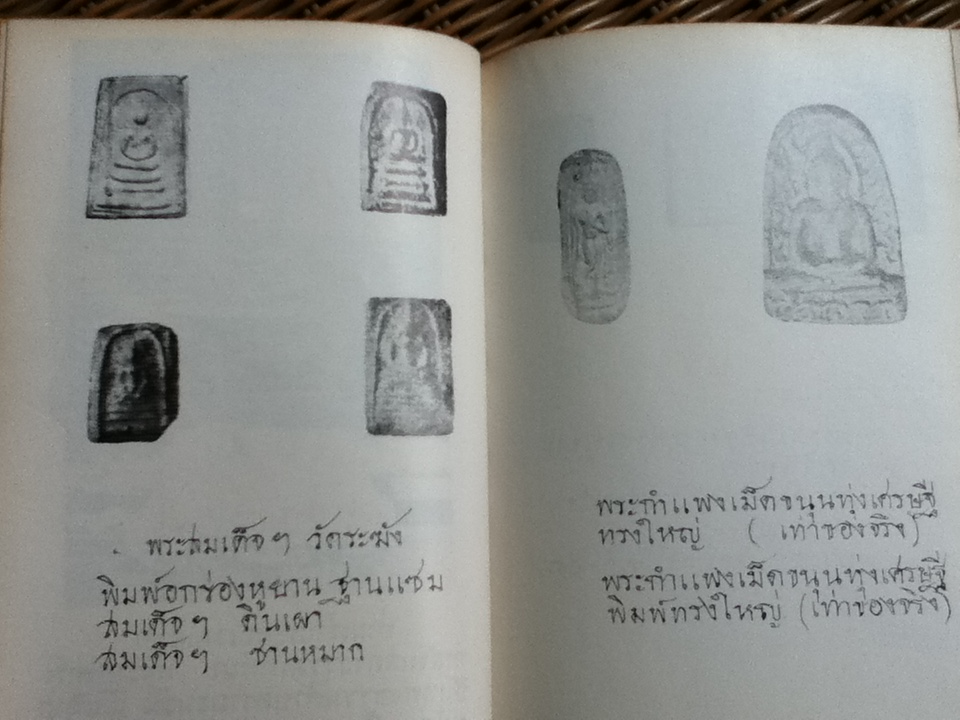 พระสมเด็จฯ วัดระฆัง
พิมพ์อกร่องหูยาน ฐานแซม
สมเด็จฯ ดินเผา
สมเด็จฯ ชานหมาก
พระกำแพงเม็ดขนุนทุ่งเศรษฐี
ทรงใหญ่ ( เท่าของจริง )
พระกำแพงเม็ดขนุนทุ่งเศรษฐี
พิมพ์ทรงใหญ่ (เท่าของจริง)